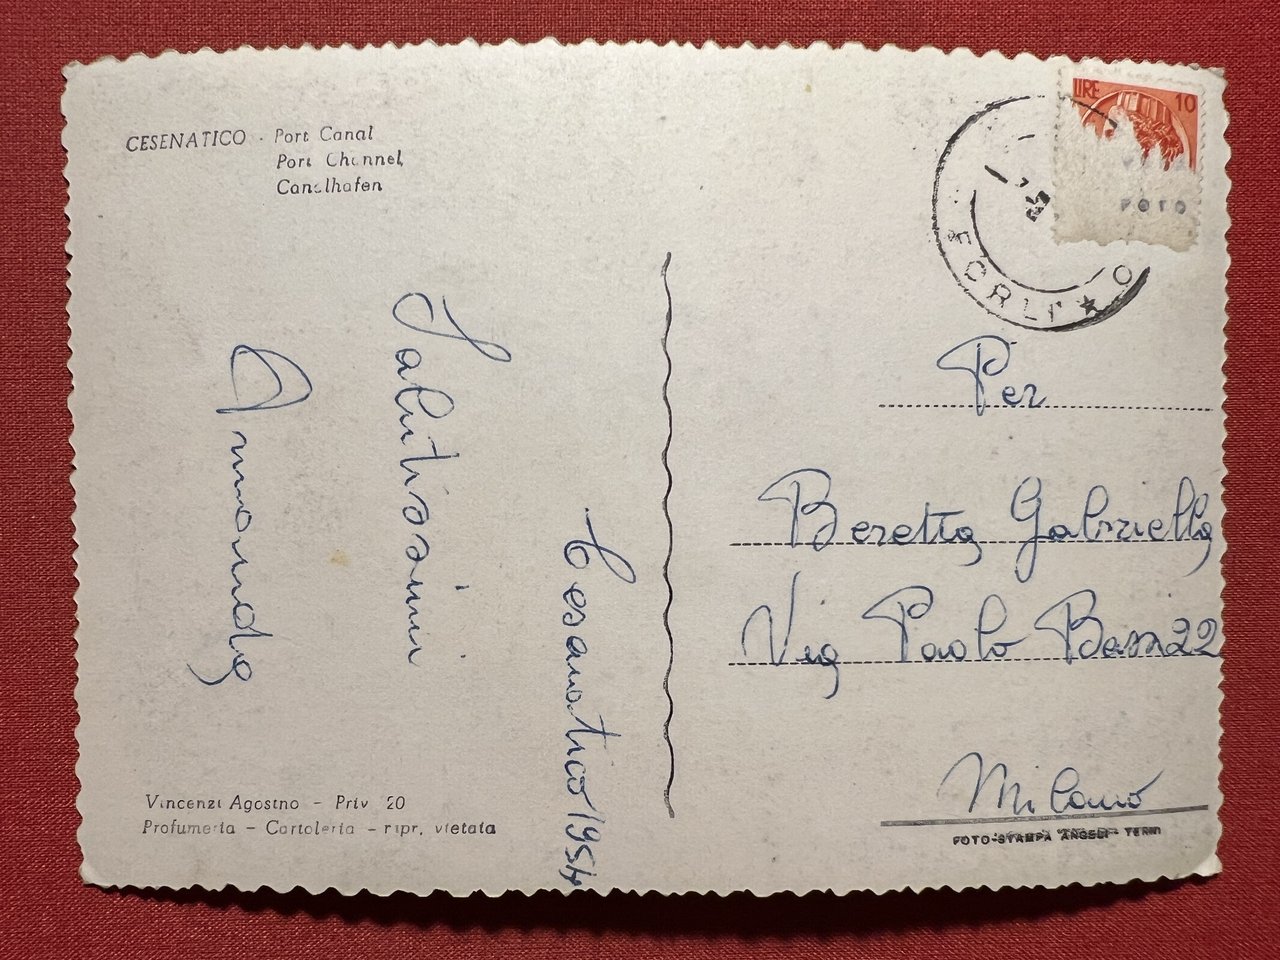 CESENATICO - Port Canal
Port Channel,
Canalhafen
LIRE 10
FOTO
FORLI' ★ O
Per
Beretta Gabriella
Via Paolo Bassi 22
Milano
Cesanatico 1954
Salutissimi
Armando
Vincenzi Agostno - Priv 20
Profumeria - Cartoleria - ripr. vietata
FOTO-STAMPA ANGELI - TERNI